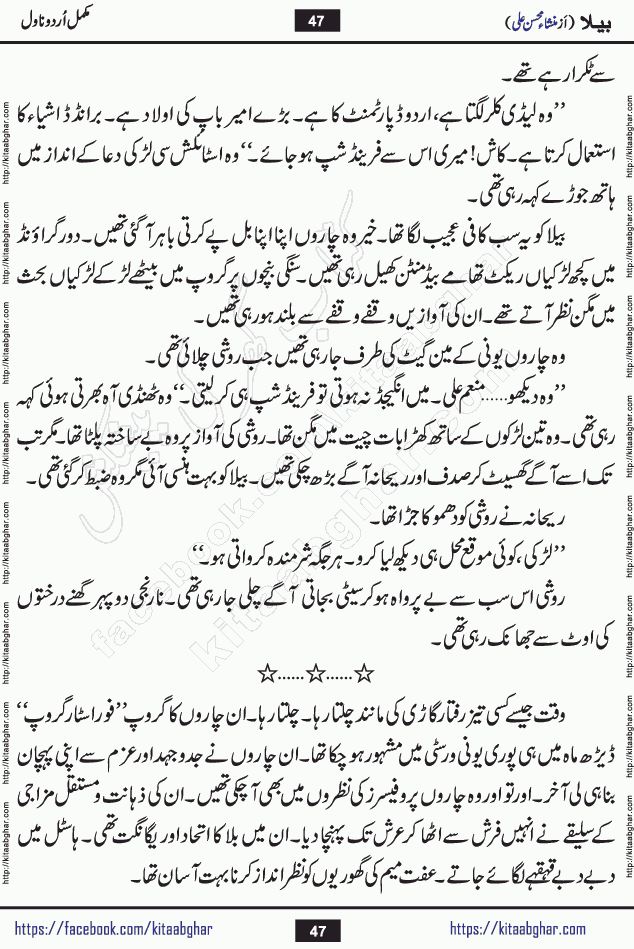 بیلا (از منشاء محسن علی)
47
مکمل اُردو ناول
سے ٹکرا رہے تھے۔
’’وہ لیڈی کلر لگتا ہے، اردو ڈپارٹمنٹ کا ہے۔ بڑے امیر باپ کی اولاد ہے۔ برانڈڈ اشیاء کا
استعمال کرتا ہے۔ کاش! میری اس سے فرینڈ شپ ہو جائے۔‘‘ وہ اسٹائلش سی لڑکی دعا کے انداز میں
ہاتھ جوڑے کہہ رہی تھی۔
بیلا کو یہ سب کافی عجیب لگا تھا۔ خیر وہ چاروں اپنا اپنا بل پے کرتی باہر آ گئی تھیں۔ دور گراؤنڈ
میں کچھ لڑکیاں ریکٹ تھامے بیڈمنٹن کھیل رہی تھیں۔ سنگی بنچوں پر گروپ میں بیٹھے لڑکے لڑکیاں بحث
میں مگن نظر آتے تھے۔ ان کی آوازیں وقفے وقفے سے بلند ہو رہی تھیں۔
وہ چاروں یونی کے مین گیٹ کی طرف جا رہی تھیں جب روشی چلائی تھی۔
’’وہ دیکھو......منعم علی۔ میں انگیجڈ نہ ہوتی تو فرینڈ شپ ہی کر لیتی۔‘‘ وہ ٹھنڈی آہ بھرتی ہوئی کہہ
رہی تھی۔ وہ تین لڑکوں کے ساتھ کھڑا بات چیت میں مگن تھا۔ روشی کی آواز پر وہ بے ساختہ پلٹا تھا۔ مگر تب
تک اسے آگے گھسیٹ کر صدف اور ریحانہ آگے بڑھ چکی تھیں۔ بیلا کو بہت ہنسی آئی مگر وہ ضبط کر گئی تھی۔
ریحانہ نے روشی کو دھموکا جڑا تھا۔
’’لڑکی، کوئی موقع محل ہی دیکھ لیا کرو۔ ہر جگہ شرمندہ کرواتی ہو۔‘‘
روشی اس سب سے بے پرواہ ہو کر سیٹی بجاتی آگے چلی جا رہی تھی۔ نارنجی دوپہر گھنے درختوں
کی اوٹ سے جھانک رہی تھی۔
☆......☆......☆
وقت جیسے کسی تیز رفتار گاڑی کی مانند چلتا رہا۔ چلتا رہا۔ ان چاروں کا گروپ ’’فور اسٹار گروپ‘‘
ڈیڑھ ماہ میں ہی پوری یونی ورسٹی میں مشہور ہو چکا تھا۔ ان چاروں نے جدوجہد اور عزم سے اپنی پہچان
بنا ہی لی آخر۔ اور تو اور وہ چاروں پروفیسرز کی نظروں میں بھی آ چکی تھیں۔ ان کی ذہانت و مستقل مزاجی
کے سلیقے نے انہیں فرش سے اٹھا کر عرش تک پہنچا دیا۔ ان میں بلا کا اتحاد اور یگانگت تھی۔ ہاسٹل میں
دبے دبے قہقہے لگائے جاتے۔ عفت میم کی گھوریوں کو نظر انداز کرنا بہت آسان تھا۔
https://facebook.com/kitaabghar
47
https://kitaabghar.com
http://kitaabghar.com
facebook.com/kitaabghar
kitaabghar.com